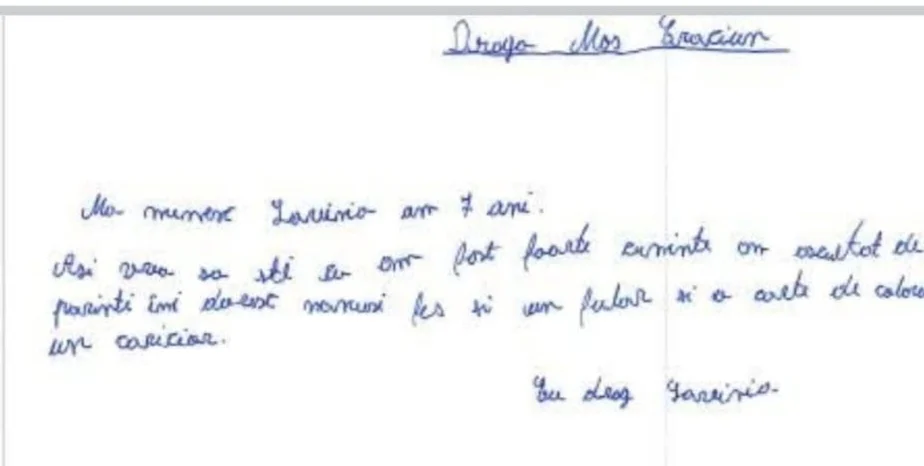 Draga Mos Craciun
Ma numesc Lavinia am 7 ani.
Asi vrea sa sti eu am fost foarte cuminte am ascultat de
parinti imi doresc manusi fes si un fular si o carte de colora
un caricior.
Cu drag Lavinia